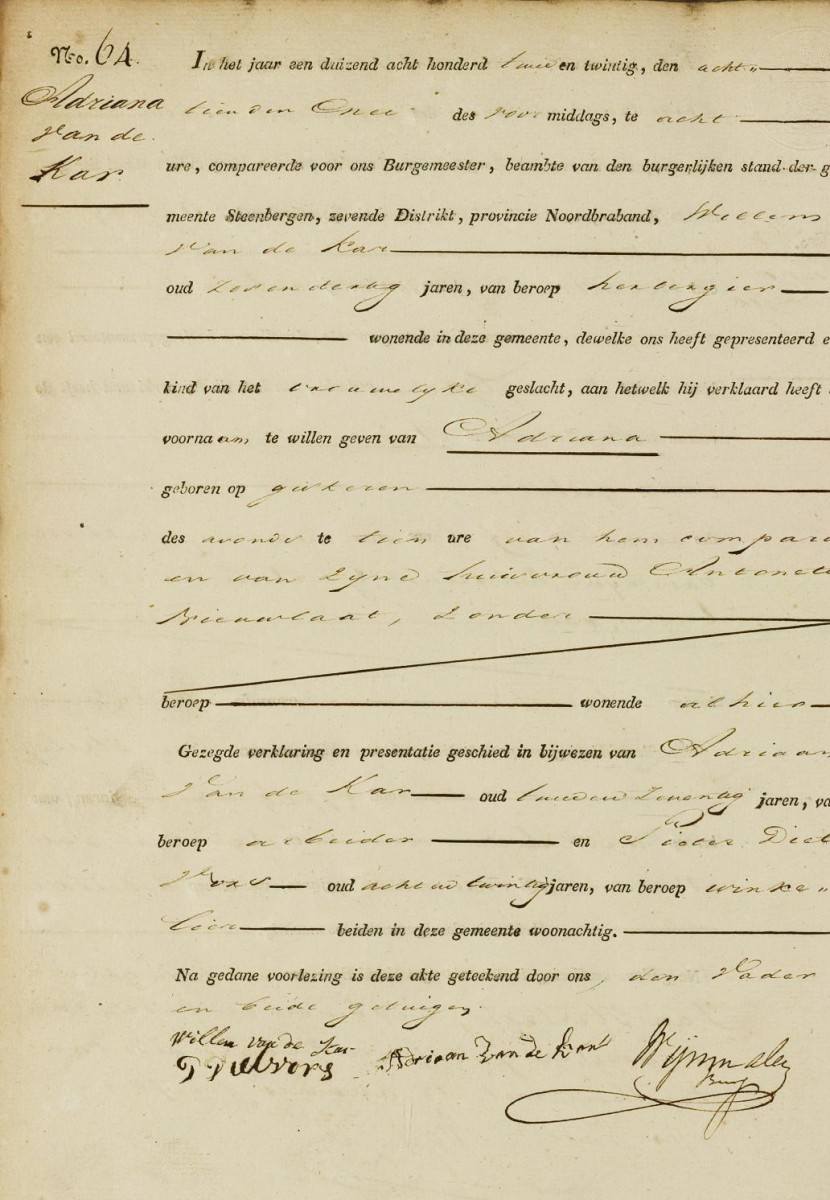 No. 64.
Adriana
van de
Kar.
In het jaar een duizend acht honderd twee en twintig, den acht„
tienden des voor middags, te acht
ure, compareerde voor ons Burgemeester, beambte van den burgerlijken stand der g
meente Steenbergen, zevende Distrikt, provincie Noordbraband, Willem
van de Kar
oud zevendertig jaren, van beroep herbergier
wonende in deze gemeente, dewelke ons heeft gepresenteerd e
kind van het vrouwelyke geslacht, aan hetwelk hij verklaard heeft
voornaam te willen geven van Adriana
geboren op gisteren
des avonds te tien ure van hem compara
en van zyne huisvrouw Antonet
Nieuwlaat, zonder
beroep wonende alhier
Gezegde verklaring en presentatie geschied in bijwezen van Adriaan
van de Kar oud tweeenzeventig jaren, va
beroep arbeider en Pieter Diel
Vors oud achtentwintig jaren, van beroep winke„
lier beiden in deze gemeente woonachtig.
Na gedane voorlezing is deze akte geteekend door ons, den Vader
en beide getuigen.
Willem van de Kar
P Dielvors Adriaan Van de Kar
Burg